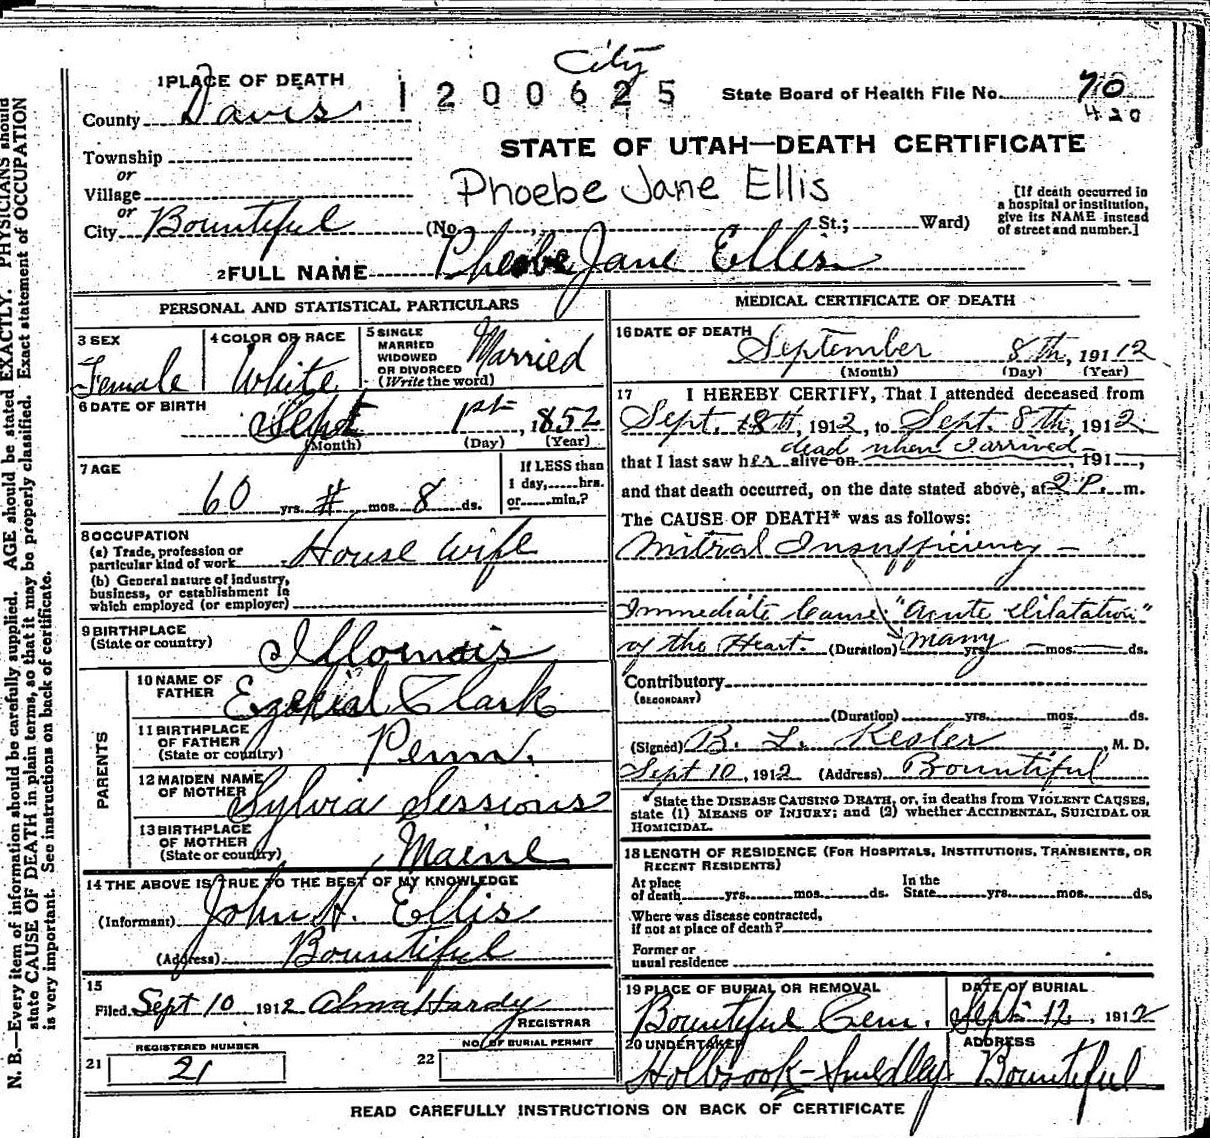 City
1 PLACE OF DEATH
1200625
State Board of Health File No. 70
420
County Davis
STATE OF UTAH—DEATH CERTIFICATE
Township
or
Village
Phoebe Jane Ellis
[If death occurred in a hospital or institution, give its NAME instead of street and number.]
or
City Bountiful (No. St.; Ward)
2 FULL NAME Pheobe Jane Ellis
PERSONAL AND STATISTICAL PARTICULARS
3 SEX
Female
4 COLOR OR RACE
White
5 SINGLE
MARRIED
WIDOWED
OR DIVORCED
(Write the word)
Married
6 DATE OF BIRTH
Sept 1st, 1852
(Month) (Day) (Year)
7 AGE
60 yrs. # mos. 8 ds.
If LESS than
1 day, hrs.
or min.?
8 OCCUPATION
(a) Trade, profession or
particular kind of work House wife
(b) General nature of industry,
business, or establishment in
which employed (or employer)
9 BIRTHPLACE
(State or country) Illonois
PARENTS
10 NAME OF
FATHER Ezekial Clark
11 BIRTHPLACE
OF FATHER
(State or country) Penn.
12 MAIDEN NAME
OF MOTHER Sylvia Sessions
13 BIRTHPLACE
OF MOTHER
(State or country) Maine
14 THE ABOVE IS TRUE TO THE BEST OF MY KNOWLEDGE
(Informant) John H. Ellis
(Address) Bountiful
15
Filed Sept 10 1912 Alma Hardy
REGISTRAR
REGISTERED NUMBER
21 21
NO. OF BURIAL PERMIT
22
MEDICAL CERTIFICATE OF DEATH
16 DATE OF DEATH
September 8th, 19112
(Month) (Day) (Year)
17 I HEREBY CERTIFY, That I attended deceased from
Sept. 8th, 1912, to Sept. 8th, 1912
dead when I arrived
that I last saw her alive on , 191 ,
and that death occurred, on the date stated above, at 2 P. m.
The CAUSE OF DEATH* was as follows:
Mitral Insufficiency —
Immediate Cause: "Acute Dilatation"
of the Heart. (Duration) Many yrs. mos. ds.
Contributory
(SECONDARY)
(Duration) yrs. mos. ds.
(Signed) B. L. Kesler, M. D.
Sept 10, 1912 (Address) Bountiful
*State the DISEASE CAUSING DEATH, or, in deaths from VIOLENT CAUSES,
state (1) MEANS OF INJURY; and (2) whether ACCIDENTAL, SUICIDAL OR
HOMICIDAL.
18 LENGTH OF RESIDENCE (FOR HOSPITALS, INSTITUTIONS, TRANSIENTS, OR
RECENT RESIDENTS)
At place
of death yrs. mos. ds.
In the
State yrs. mos. ds.
Where was disease contracted,
if not at place of death?
Former or
usual residence
19 PLACE OF BURIAL OR REMOVAL
Bountiful Cem.
DATE OF BURIAL
Sept 12, 1912
20 UNDERTAKER
Holbrook-Smedley
ADDRESS
Bountiful
READ CAREFULLY INSTRUCTIONS ON BACK OF CERTIFICATE
N. B.—Every item of information should be carefully supplied. AGE should be stated EXACTLY. PHYSICIANS should
state CAUSE OF DEATH in plain terms, so that it may be properly classified. Exact statement of OCCUPATION
is very important. See instructions on back of certificate.